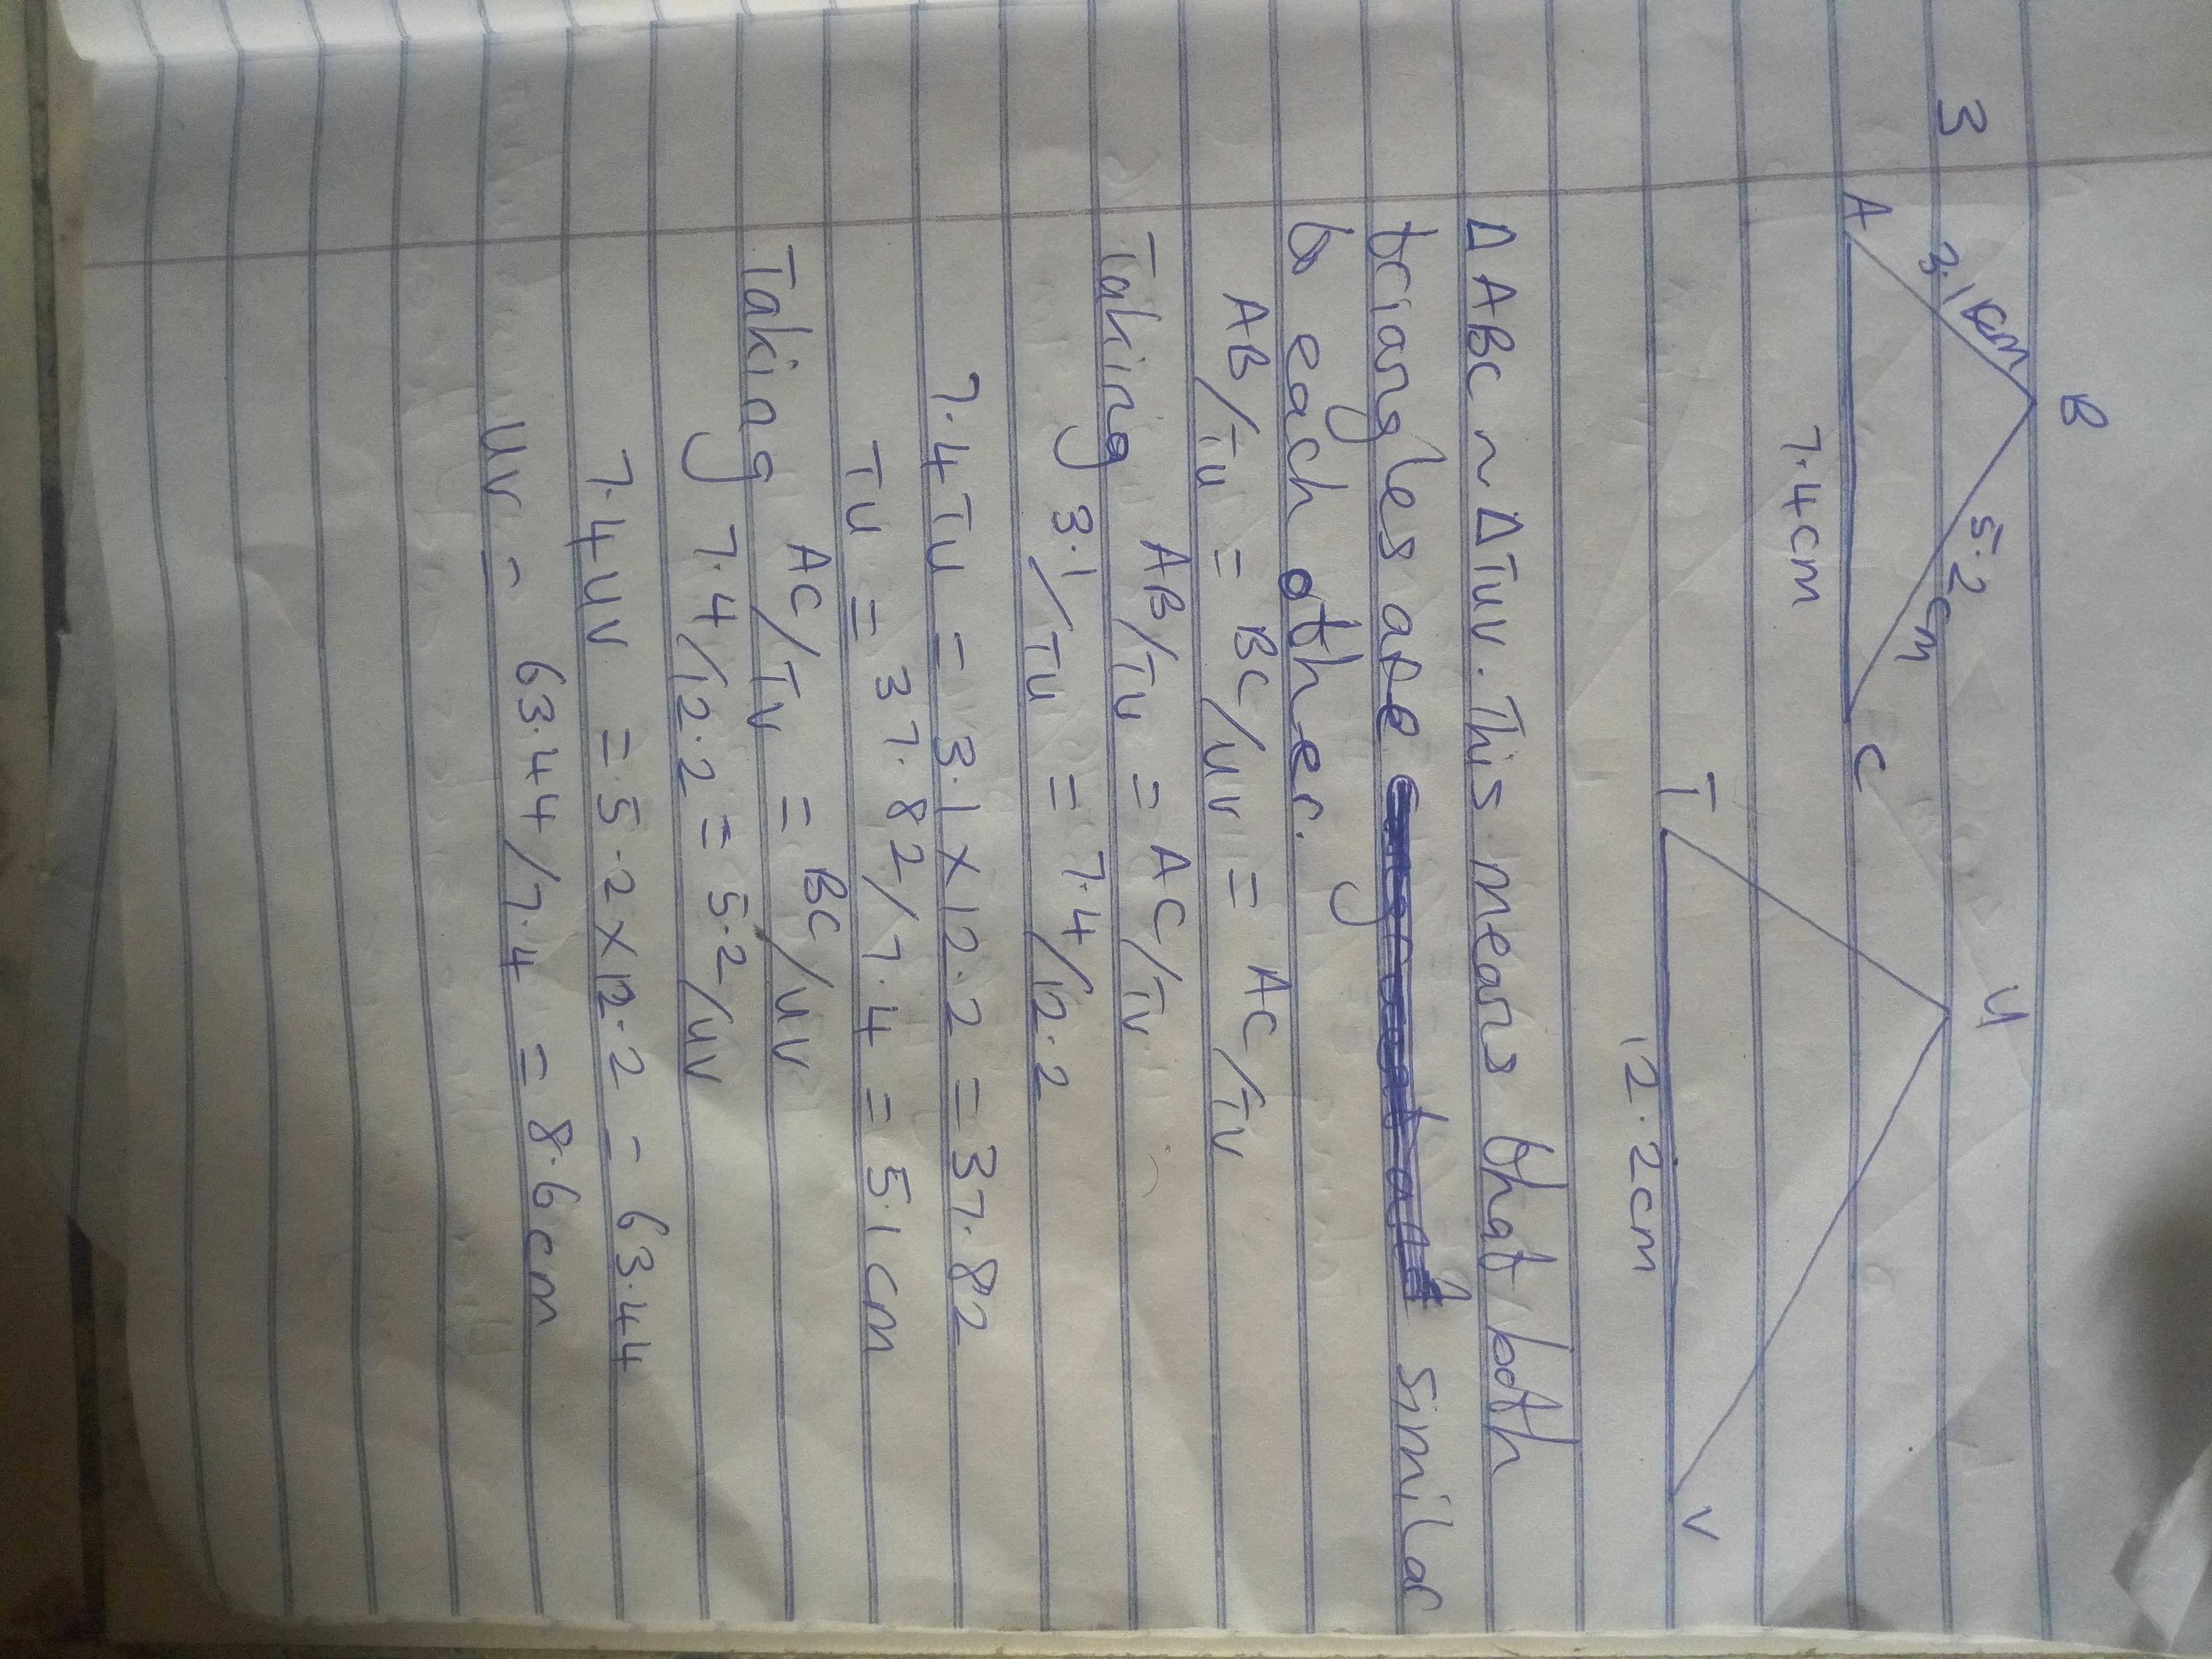 3
B
3.1cm
5.2cm
A
C
7.4cm
U
T
V
12.2cm
Δ ABC ~ ΔTUV. This means that both
triangles are similar
to each other.
AB/TU = BC/UV = AC/TV
Taking AB/TU = AC/TV
3.1/TU = 7.4/12.2
7.4TU = 3.1 × 12.2 = 37.82
TU = 37.82/7.4 = 5.1cm
Taking AC/TV = BC/UV
7.4/12.2 = 5.2/UV
7.4UV = 5.2 × 12.2 = 63.44
UV = 63.44/7.4 = 8.6cm